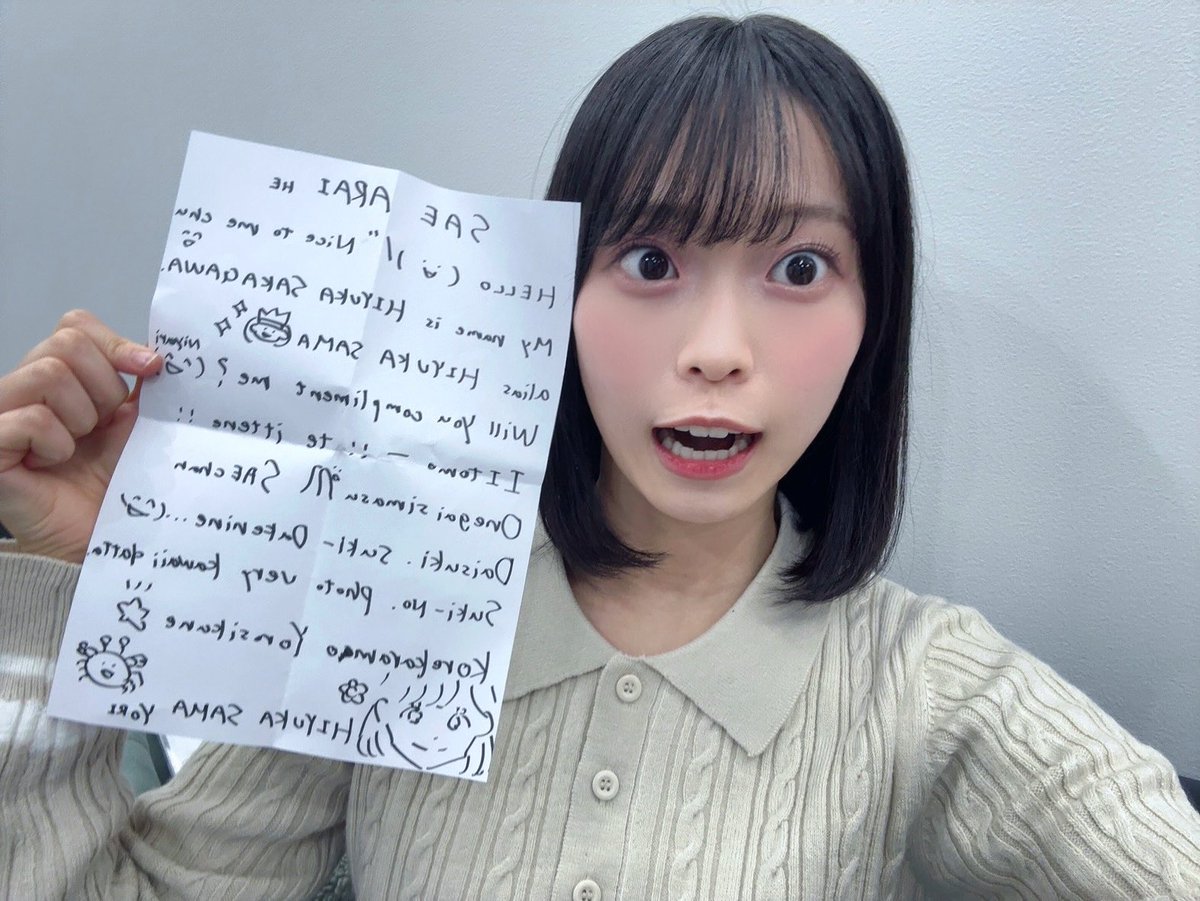 SAE ARAI HE
HELLO (¨) )/" Nice to me chu
My name is HIYUKA SAKAGAWA.
alias HIYUKA SAMA
Will you compliment me? nigari
IItomo — !! te ittene !!
Onegai simasu m SAEchan
Daisuki. Suki- Dakenine...
Suki-No. photo very kawaii datta.
Korekaramao Yorosikune
HIYUKA SAMA YORI